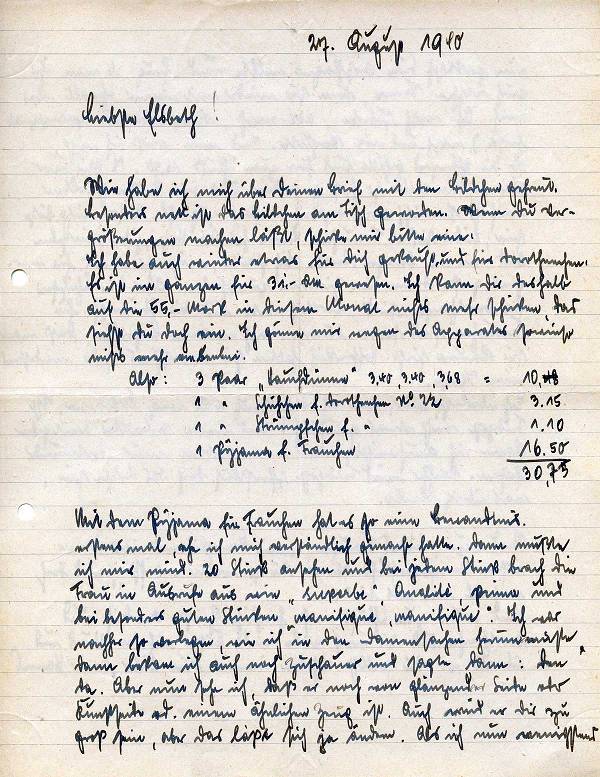 27. August 1940
Liebste Elsbeth!
Wie habe ich mich über Deinen Brief mit den Bildchen gefreut.
Besonders nett ist das Bildchen am Tisch geworden. Wenn Du Ver-
größerungen machen läßt, schicke mir bitte eine.
Ich habe auch wieder etwas für Dich gekauft, und für Dorothenchen.
Es ist im ganzen für 31.- RM gewesen. Ich kann Dir deshalb
auch die 55,- Mark in diesem Monat nichts mehr schicken, das
siehst Du doch ein. Ich muss mir wegen des Apparates sowieso
nichts mehr
Also: 3 Paar 3,40, 3,40, 3,68 = 10,48
1 " Schühchen f. Dorothenchen No. 22 3.15
1 " Strümpfchen f. " 1.10
1 Pÿjama f. Frauchen 16.50
30,73
Mit dem Pÿjama für Frauchen hat es so eine Bewandtnis.
erstens mal, ehe ich mich verständlich gemacht hatte. Dann mußte
ich mir mind. 20 Stück ansehen und bei jedem Stück brach die
Frau in Ausrufe aus wie „superbe", Qualité prima und
bei besonders guten Stücken „manifique, manifique". Ich war
nachher so verlegen, wie ich in den Damensachen herum
dann bekam ich auch noch Zuschauer und sagte dann: den
da. Aber nun sehe ich, daß er noch von glänzender Seide oder
Kunstseide od. einem ähnlichen Zeug ist. Auch wird er Dir zu
groß sein, aber das läßt sich ja ändern. Als ich nun wenigstens